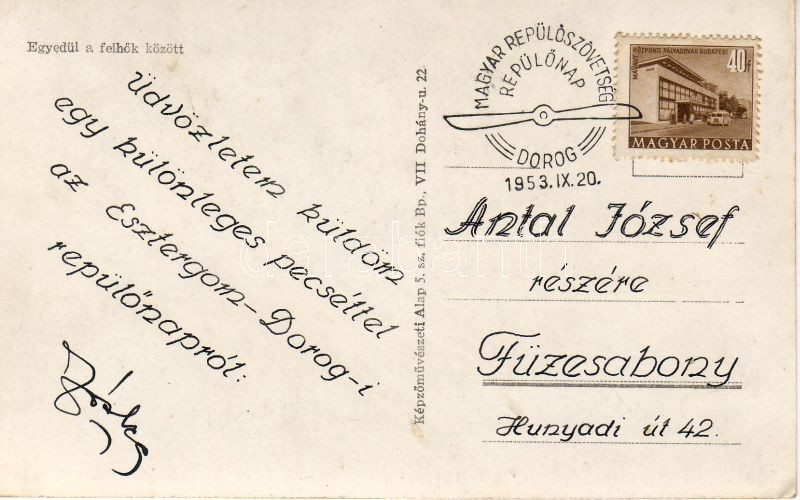 Egyedül a felhők között
Üdvözletem küldöm
egy különleges pecséttel
az Esztergom-Dorog-i
repülőnapról:
Képzőművészeti Alap 5. sz. fiók Bp., VII Dohány-u. 22
MAGYAR REPÜLŐSZÖVETSÉG
REPÜLŐNAP
DOROG
1953.IX.20.
MÁVAUT KÖZPONTI PÁLYAUDVAR BUDAPEST
40f
MAGYAR POSTA
Antal József
részére
Füzesabony
Hunyadi út 42.